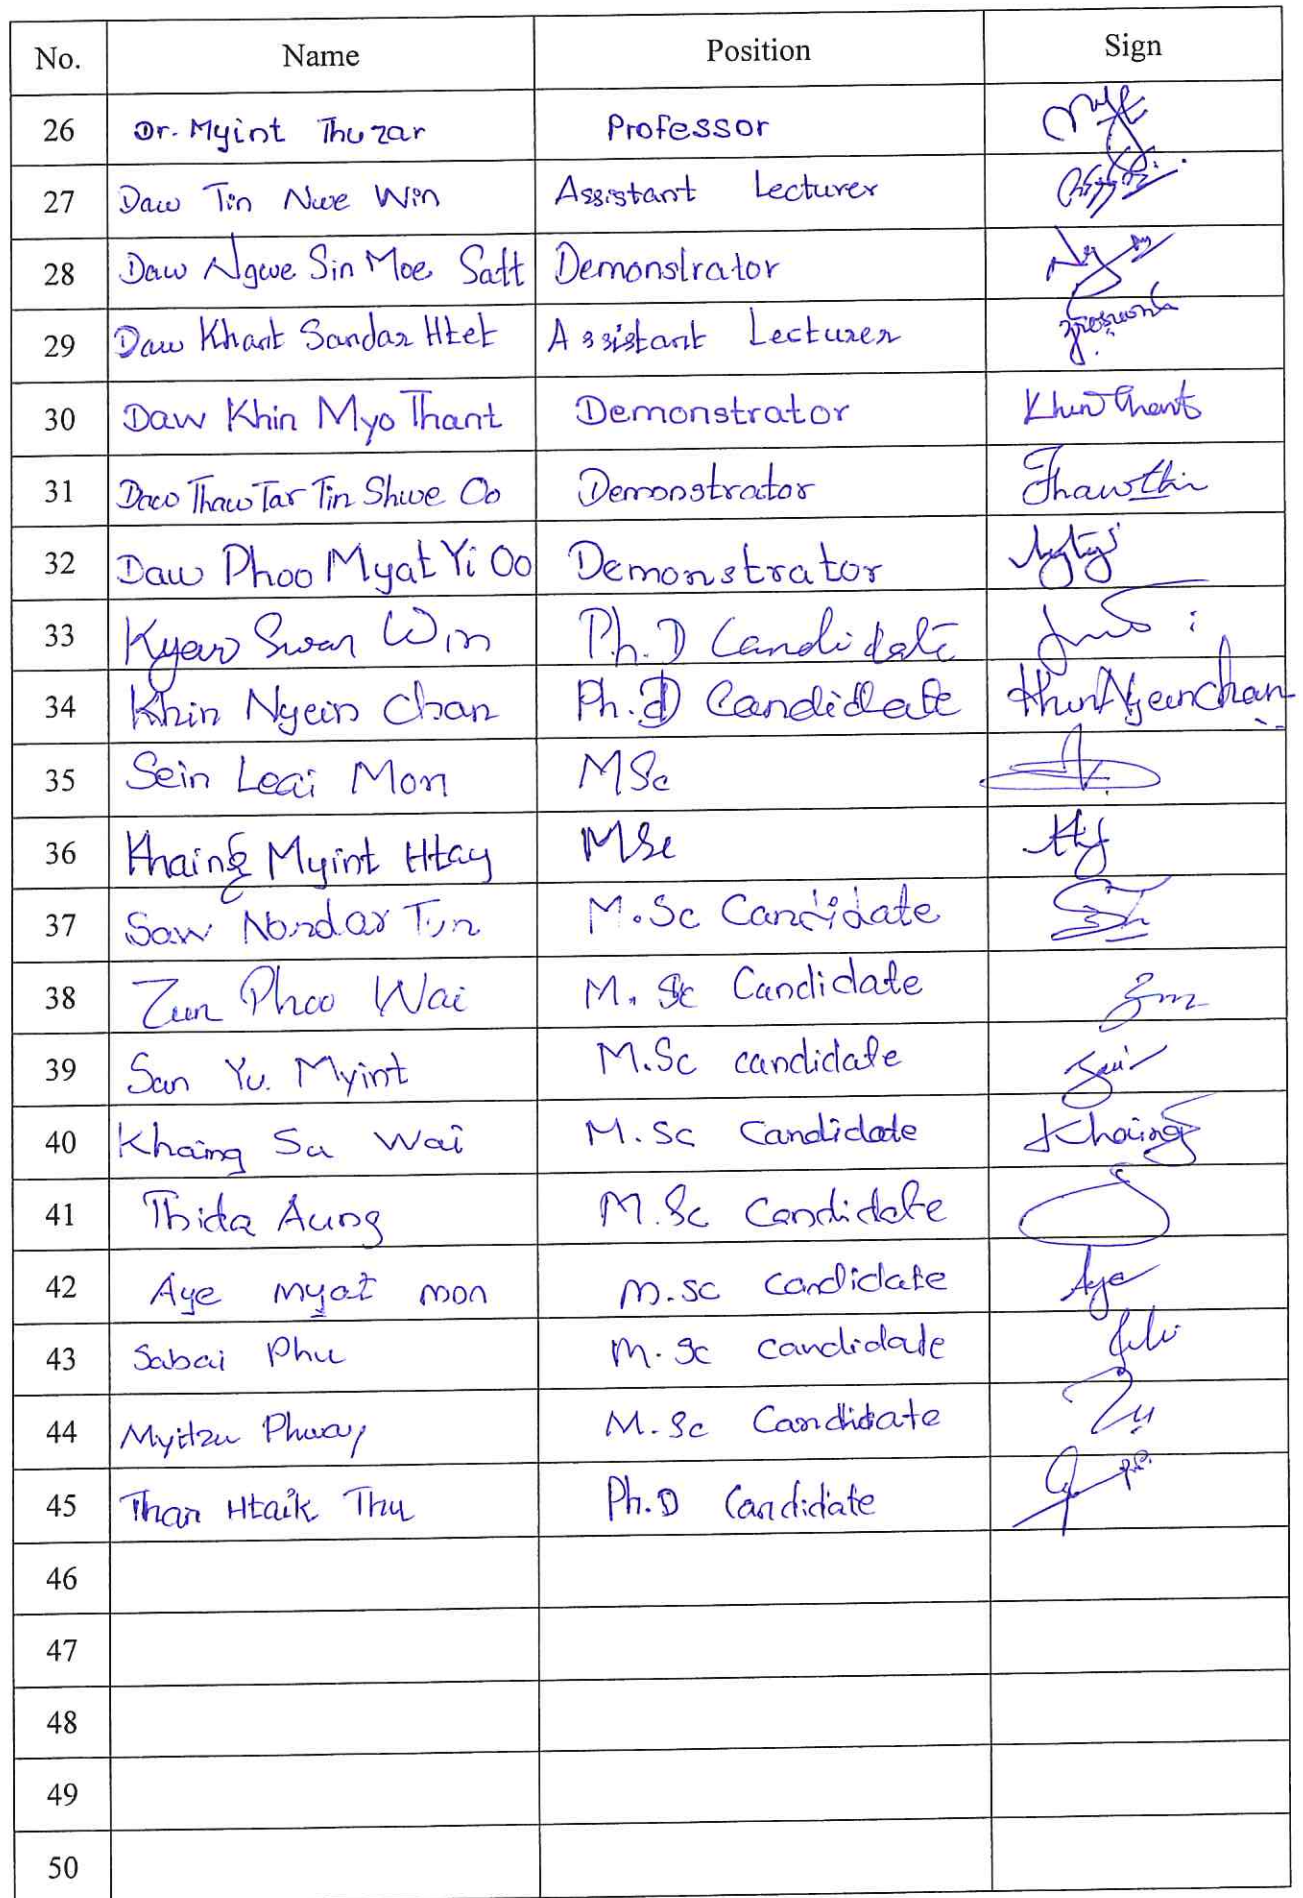 No. Name Position Sign
26 Dr. Myint Thuzar Professor
27 Daw Tin Nwe Win Assistant Lecturer
28 Daw Ngwe Sin Moe Satt Demonstrator
29 Daw Khant Sandar Htet Assistant Lecturer
30 Daw Khin Myo Thant Demonstrator Khin Thant
31 Daw Thaw Tar Tin Shwe Oo Demonstrator
32 Daw Phoo Myat Yi Oo Demonstrator
33 Kyaw Swan Win Ph.D Candidate
34 Khin Nyein Chan Ph.D Candidate Khin Nyein Chan
35 Sein Leai Mon MSc
36 Khaing Myint Htay MSc
37 Saw Nandar Tun M.Sc Candidate
38 Zun Phoo Wai M.Sc Candidate
39 San Yu Myint M.Sc candidate
40 Khaing Su Wai M.Sc Candidate Khaing
41 Thida Aung M.Sc Candidate
42 Aye myat mon M.sc candidate Aye
43 Sabai Phu M.Sc candidate
44 Myitzu Phway M.Sc Candidate
45 Than Htaik Thu Ph.D Candidate
46
47
48
49
50